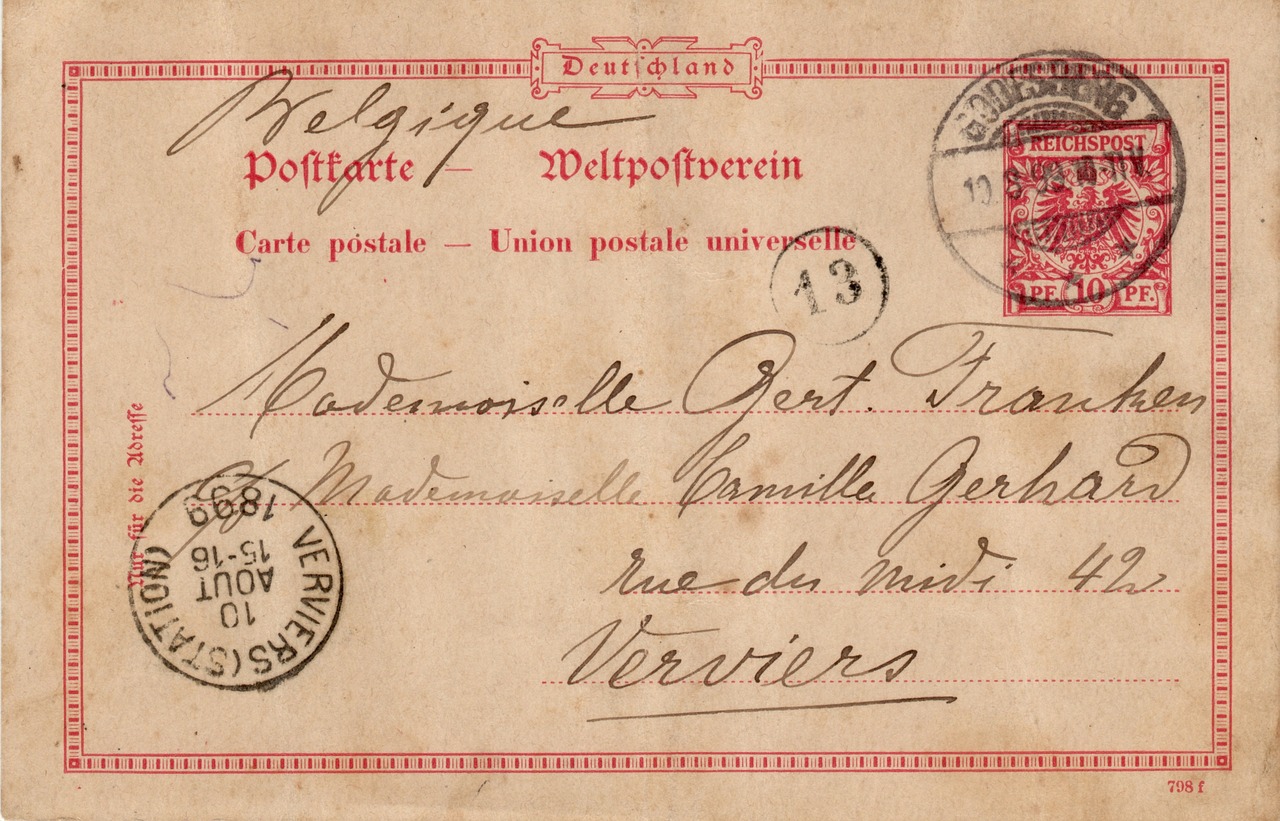 Deutschland
Belgique
Postkarte — Weltpostverein
Carte postale — Union postale universelle
GODESBERG
10. 8. 99. 10-11 V.
REICHSPOST
PF. 10 PF.
13
Mademoiselle Gert. Franken
c/ Mademoiselle Camille Gerhard
rue du midi 42
Verviers
Nur für die Adresse
VERVIERS (STATION)
10
AOUT
15-16
1899
798 f